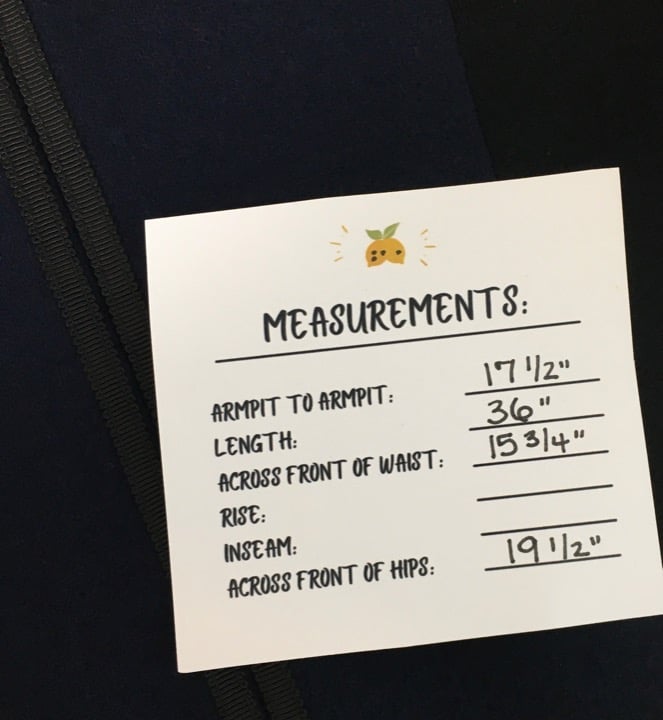 MEASUREMENTS:
ARMPIT TO ARMPIT: 17 1/2"
LENGTH: 36"
ACROSS FRONT OF WAIST: 15 3/4"
RISE:
INSEAM:
ACROSS FRONT OF HIPS: 19 1/2"